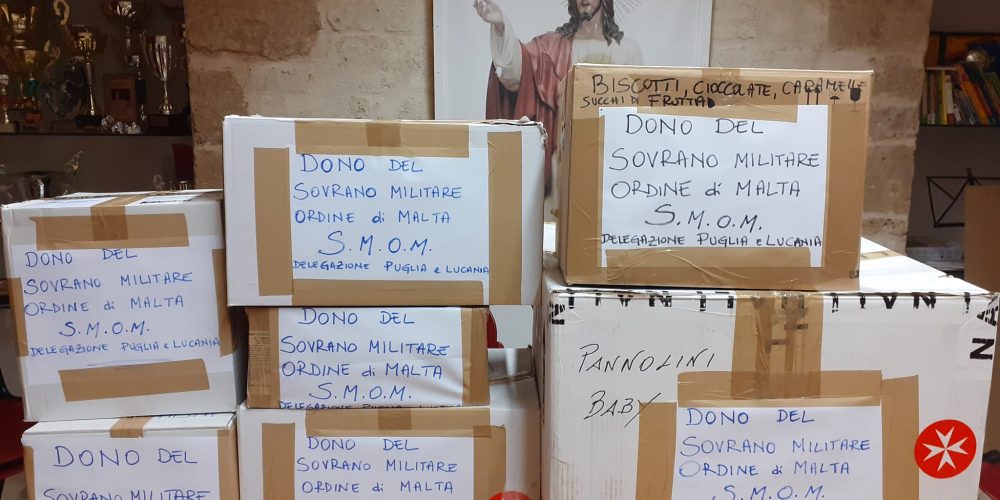 DONO DEL
SOVRANO MILITARE
ORDINE di MALTA
S.M.O.M.
DELEGAZIONE PUGLIA e LUCANIA
DONO DEL
SOVRANO MILITARE
DONO DEL
SOVRANO MILITARE
ORDINE di MALTA
S.M.O.M.
DELEGAZIONE PUGLIA e LUCANIA
DONO DEL
SOVRANO MILITARE
ORDINE di MALTA
S.M.O.M.
DELEGAZIONE PUGLIA e LUCANIA
DONO DEL
SOVRANO MILITARE
ORDINE di MALTA
BISCOTTI, CIOCCOLATE, CARAMELLE
SUCCHI DI FRUTTA
DONO DEL
SOVRANO MILITARE
ORDINE di MALTA
S.M.O.M.
DELEGAZIONE PUGLIA e LUCANIA
PANNOLINI
BABY
DONO DEL
SOVRANO MILITARE
ORDINE di MALTA
S.M.O.M.